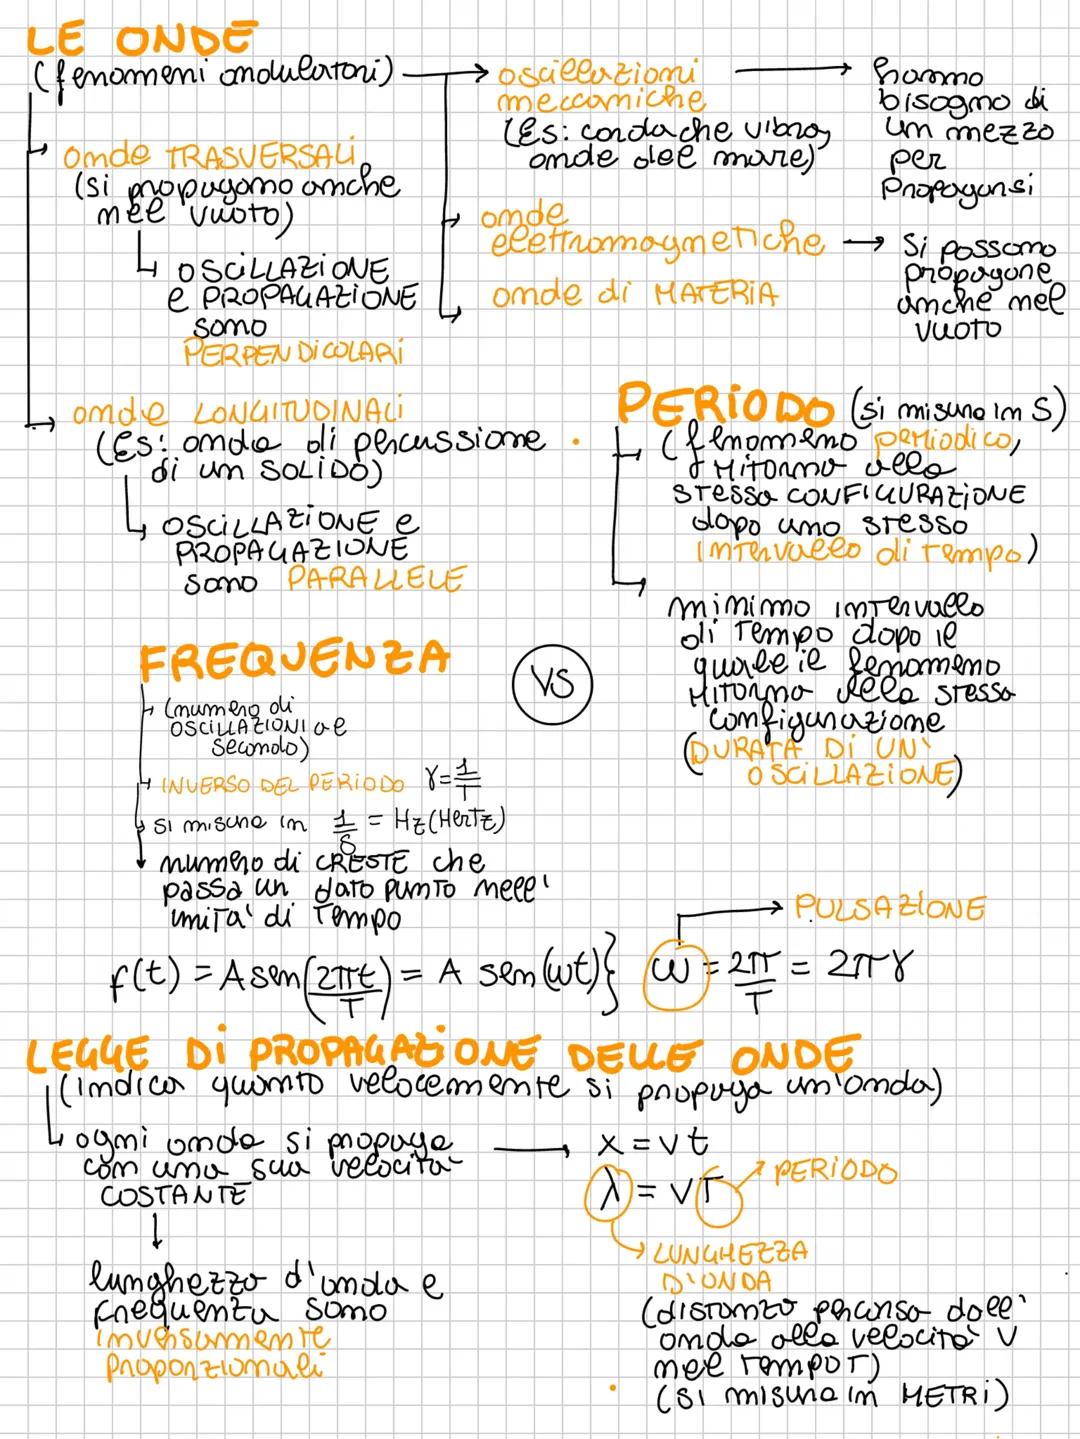 LE ONDE
(fenomeni ondulatori)
onde TRASVERSALI
(si propagano anche
nel vuoto)
OSCILLAZIONE
e PROPAGAZIONE
sono
PERPENDICOLARI
onde LONGITUDINALI
(Es: onda di percussione
di un SOLIDO)
OSCILLAZIONE e
PROPAGAZIONE
sono PARALLELE
oscillazioni
meccaniche
(Es: corda che vibra,
onde del mare)
hanno
bisogno di
un mezzo
per
propagarsi
onde
elettromagnetiche
si possono
propagare
anche nel
vuoto
onde di MATERIA
PERIODO (si misura in S)
(fenomeno periodico,
ritorna alla
stessa CONFIGURAZIONE
dopo uno stesso
intervallo di tempo)
minimo intervallo
di tempo dopo il
quale il fenomeno
ritorna alla stessa
configurazione
(DURATA DI UN'
OSCILLAZIONE)
FREQUENZA
VS
(numero di
OSCILLAZIONI al
secondo)
INVERSO DEL PERIODO γ=1/T
si misura in 1/S = Hz (Hertz)
numero di CRESTE che
passa un dato punto nell'
unita' di tempo
PULSAZIONE
f(t) = A sen(2πt/T) = A sen(ωt)} ω = 2π/T = 2πγ
LEGGE DI PROPAGAZIONE DELLE ONDE
(indica quanto velocemente si propaga un'onda)
ogni onda si propaga
con una sua velocità
COSTANTE
lunghezza d'onda e
frequenza sono
inversamente
proporzionali
x = vt
λ = vT
PERIODO
LUNGHEZZA
D'ONDA
(distanza percorsa dall'
onda alla velocità v
nel tempo T)
(si misura in METRI)